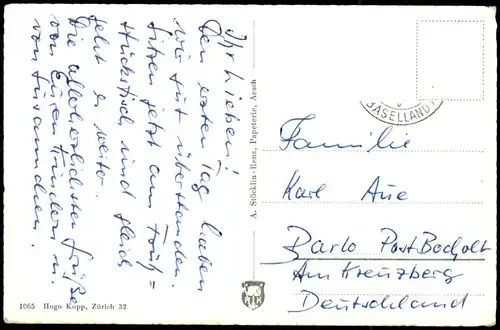 Ihr Lieben!
Den ersten Tag haben
wir gut überstanden.
Sitzen jetzt am Früh=
stückstisch und gleich
geht es weiter.
Die allerherzlichsten Grüße
von Euren Kindern u.
von
A. Stöcklin-Renz, Papeterie, Aesch
BASELLAND
Familie
Karl Aue
Barlo Post Bocholt
Am Kreuzberg
Deutschland
1065 Hugo Kopp, Zürich 32